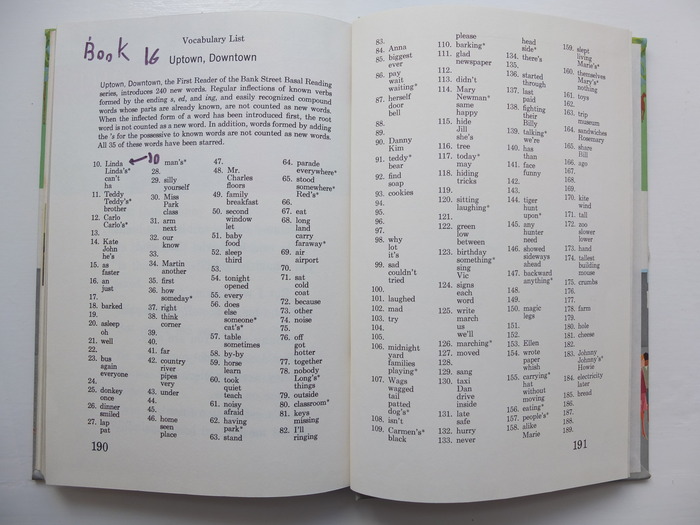 Vocabulary List
Book 16
Uptown, Downtown
Uptown, Downtown, the First Reader of the Bank Street Basal Reading
series, introduces 240 new words. Regular inflections of known verbs
formed by the ending s, ed, and ing, and easily recognized compound
words whose parts are already known, are not counted as new words.
When the inflected form of a word has been introduced first, the root
word is not counted as a new word. In addition, words formed by adding
the 's for the possessive to known words are not counted as new words.
All 35 of these words have been starred.
10. Linda 10
Linda's*
can't
ha
11. Teddy
Teddy's*
brother
12. Carlo
Carlo's*
13.
14. Kate
John
he's
15. as
faster
16. an
just
17.
18. barked
19.
20. asleep
oh
21. well
22.
23. bus
again
everyone
24.
25. donkey
once
26. dinner
smiled
27. lap
pat
man's*
28.
29. silly
yourself
30. Miss
Park
class
31. arm
next
32. our
know
33.
34. Martin
another
35.
36. how
someday*
37. right
38. think
corner
39.
40.
41. far
42. country
river
pipes
very
43. under
44.
45.
46. home
seen
place
47.
48. Mr.
Charles
floors
49. family
breakfast
50. second
window
let
51. baby
food
52. sleep
third
53.
54. tonight
opened
55. every
56. does
else
someone*
cat's*
57. table
sometimes
58. by-by
59. horse
learn
60. took
quiet
teach
61. noisy
afraid
62. having
park*
63. stand
64. parade
everywhere*
65. stood
somewhere*
Red's*
66.
67. eat
68. long
land
carry
faraway*
69. air
airport
70.
71. sat
cold
coat
72. because
73. other
74. noise
75.
76. off
got
hotter
77. together
78. nobody
Long's*
things
79. outside
80. classroom*
81. keys
missing
82. I'll
ringing
190
83.
84. Anna
85. biggest
ever
86. pay
wait
waiting*
87. herself
door
bell
88.
89.
90. Danny
Kim
91. teddy*
bear
92. find
soap
93. cookies
94.
95.
96.
97.
98. why
lot
it's
99. sad
couldn't
tried
100.
101. laughed
102. mad
103. try
104.
105.
106. midnight
yard
families
playing*
107. Wags
wagged
tail
patted
dog's*
108. isn't
109. Carmen's*
black
please
110. barking*
111. glad
newspaper
112.
113. didn't
114. Mary
Newman*
same
happy
115. hide
Jill
she's
116. tree
117. today*
may
118. hiding
tricks
119.
120. sitting
laughing*
121.
122. green
low
between
123. birthday
something*
sing
Vic
124. signs
each
word
125. write
march
us
we'll
126. marching*
127. moved
128.
129. sang
130. taxi
Dan
drive
inside
131. late
safe
132. hurry
133. never
head
side*
134. there's
135.
136. started
through
137. last
paid
138. fighting
their
Billy
139. talking*
we're
140. has
than
141. face
funny
142.
143.
144. tiger
hunt
upon*
145. any
hunter
slower
146. showed
sideways
ahead
147. backward
anything*
148.
149.
150. magic
legs
151.
152.
153. Ellen
154. wrote
paper
whish
155. carrying*
hat
without
moving
156. eating*
157. people's*
158. alike
Marie
159. slept
living
Marie's*
160. themselves
Mary's*
nothing
161. toys
162.
163. trip
museum
164. sandwiches
Rosemary
165. share
Bill
166. ago
167.
168.
169.
170. kite
wind
171. tall
172. zoo
need
lower
173. hand
174. tallest
building
mouse
175. crumbs
176.
177.
178. farm
179.
180. hole
181. cheese
182.
183. Johnny
Johnny's*
Howie
184. electricity
later
185. bread
186.
187.
188.
189.
191